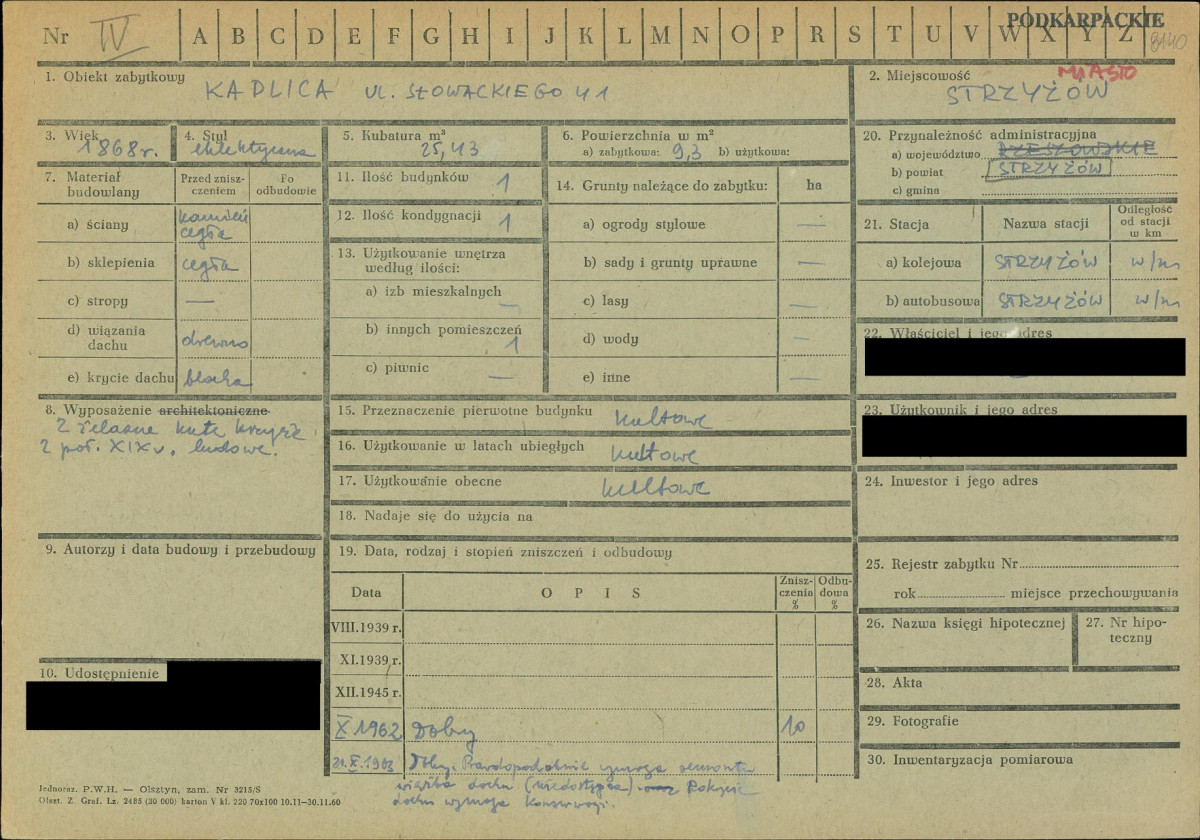 Nr IV A B C D E F G H I J K L M N O P R S T U V W X Y Z PODKARPACKIE 8140
1. Obiekt zabytkowy KAPLICA UL. SŁOWACKIEGO 41
2. Miejscowość MIASTO
STRZYŻÓW
3. Wiek 1868 r.
4. Styl eklektyczna
5. Kubatura m³
25,43
6. Powierzchnia w m²
a) zabytkowa: 9,3 b) użytkowa:
20. Przynależność administracyjna
a) województwo RZESZOWSKIE
b) powiat STRZYŻÓW
c) gmina
7. Materiał budowlany
Przed zniszczeniem
Po odbudowie
a) ściany kamień cegła
b) sklepienia cegła
c) stropy —
d) wiązania dachu drewno
e) krycie dachu blacha
11. Ilość budynków 1
12. Ilość kondygnacji 1
13. Użytkowanie wnętrza
według ilości:
a) izb mieszkalnych —
b) innych pomieszczeń 1
c) piwnic —
14. Grunty należące do zabytku: ha
a) ogrody stylowe —
b) sady i grunty uprawne —
c) lasy —
d) wody —
e) inne —
21. Stacja Nazwa stacji Odległość od stacji w km
a) kolejowa STRZYŻÓW w/m
b) autobusowa STRZYŻÓW w/m
22. Właściciel i jego adres
23. Użytkownik i jego adres
24. Inwestor i jego adres
8. Wyposażenie architektoniczne
2 żelazne kute krzyże
2 poł. XIX w. ludowe.
15. Przeznaczenie pierwotne budynku kultowe
16. Użytkowanie w latach ubiegłych kultowe
17. Użytkowanie obecne kultowe
18. Nadaje się do użycia na
9. Autorzy i data budowy i przebudowy
10. Udostępnienie
19. Data, rodzaj i stopień zniszczeń i odbudowy
Data OPIS Zniszczenia % Odbudowa %
VIII.1939 r.
XI.1939 r.
XII.1945 r.
X 1962 Dobry 10
Dobry. Prawdopodobnie wymaga remontu
więźba dachu (niedostępna) Pokrycie
dachu wymaga konserwacji.
25. Rejestr zabytku Nr
rok miejsce przechowywania
26. Nazwa księgi hipotecznej
27. Nr hipoteczny
28. Akta
29. Fotografie
30. Inwentaryzacja pomiarowa
Jednoraz. P.W.H. — Olsztyn, zam. Nr 3215/S
Olszt. Z. Graf. Lz. 2485 (30 000) karton V kl. 220 70x100 10.11—30.11.60